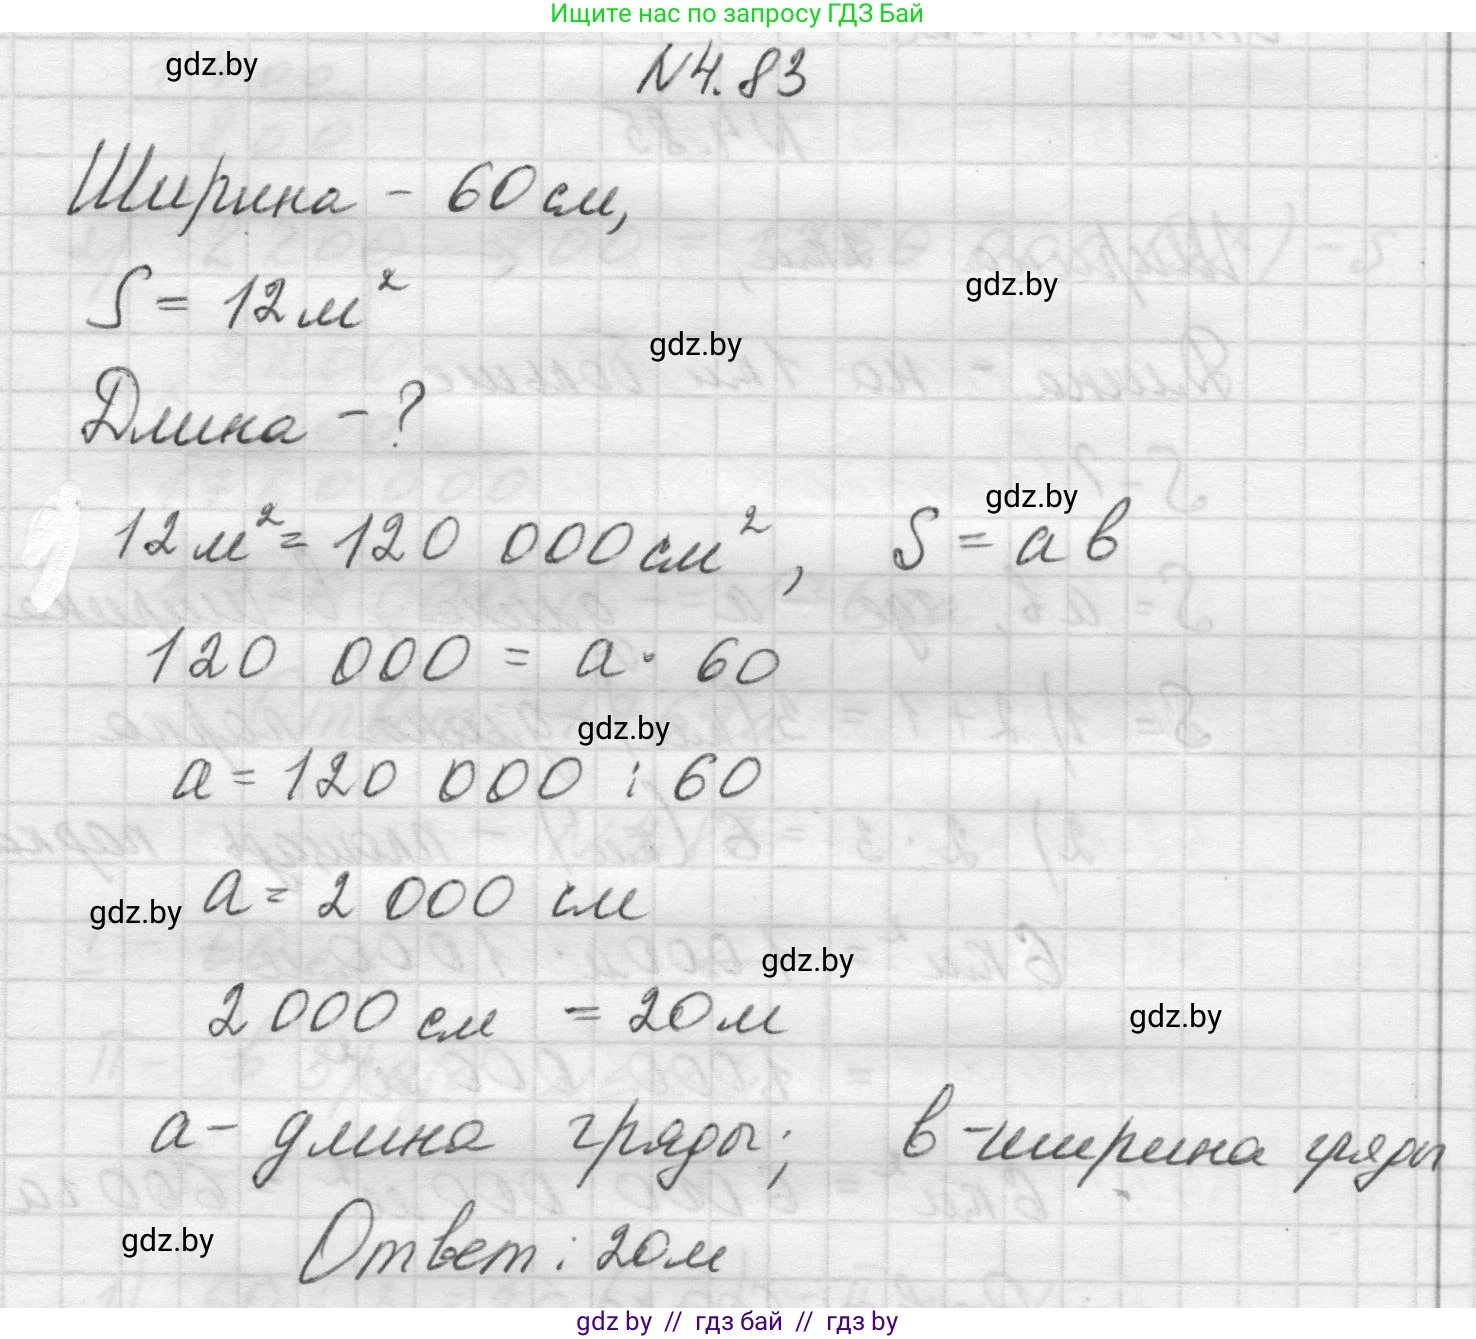 Ищите нас по запросу ГДЗ Бай
gdz.by
N4.83
Ширина - 60 см,
S = 12 м²
gdz.by
gdz.by
Длина - ?
gdz.by
12 м² = 120 000 см², S = a в
120 000 = a · 60
gdz.by
a = 120 000 : 60
a = 2 000 см
gdz.by
gdz.by
2 000 см = 20 м
gdz.by
a - длина гряды; в - ширина гряды
gdz.by
Ответ: 20м
gdz by // гдз бай // гдз by